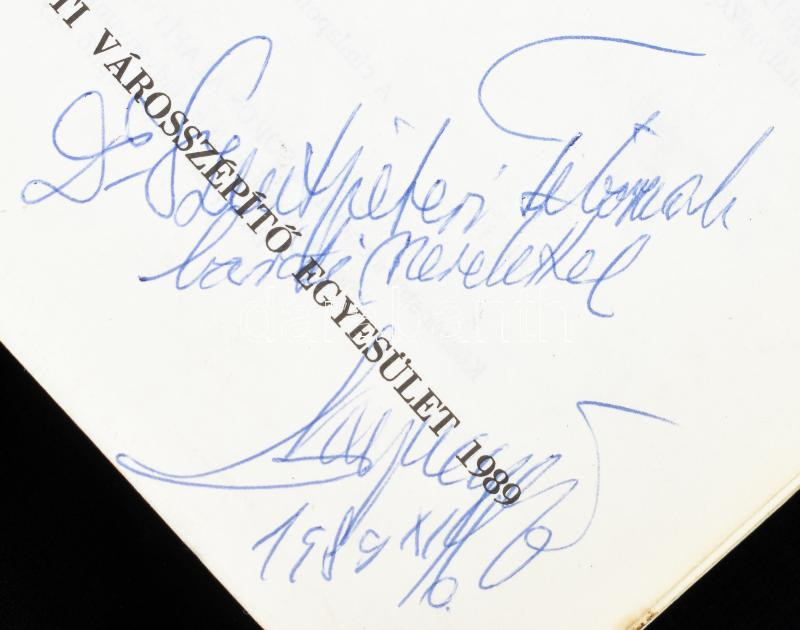 TI VÁROSSZÉPÍTŐ EGYESÜLET 1989
Dr Szentpéteri Tibornak
baráti szeretettel
1989 XII/6.
darabanth